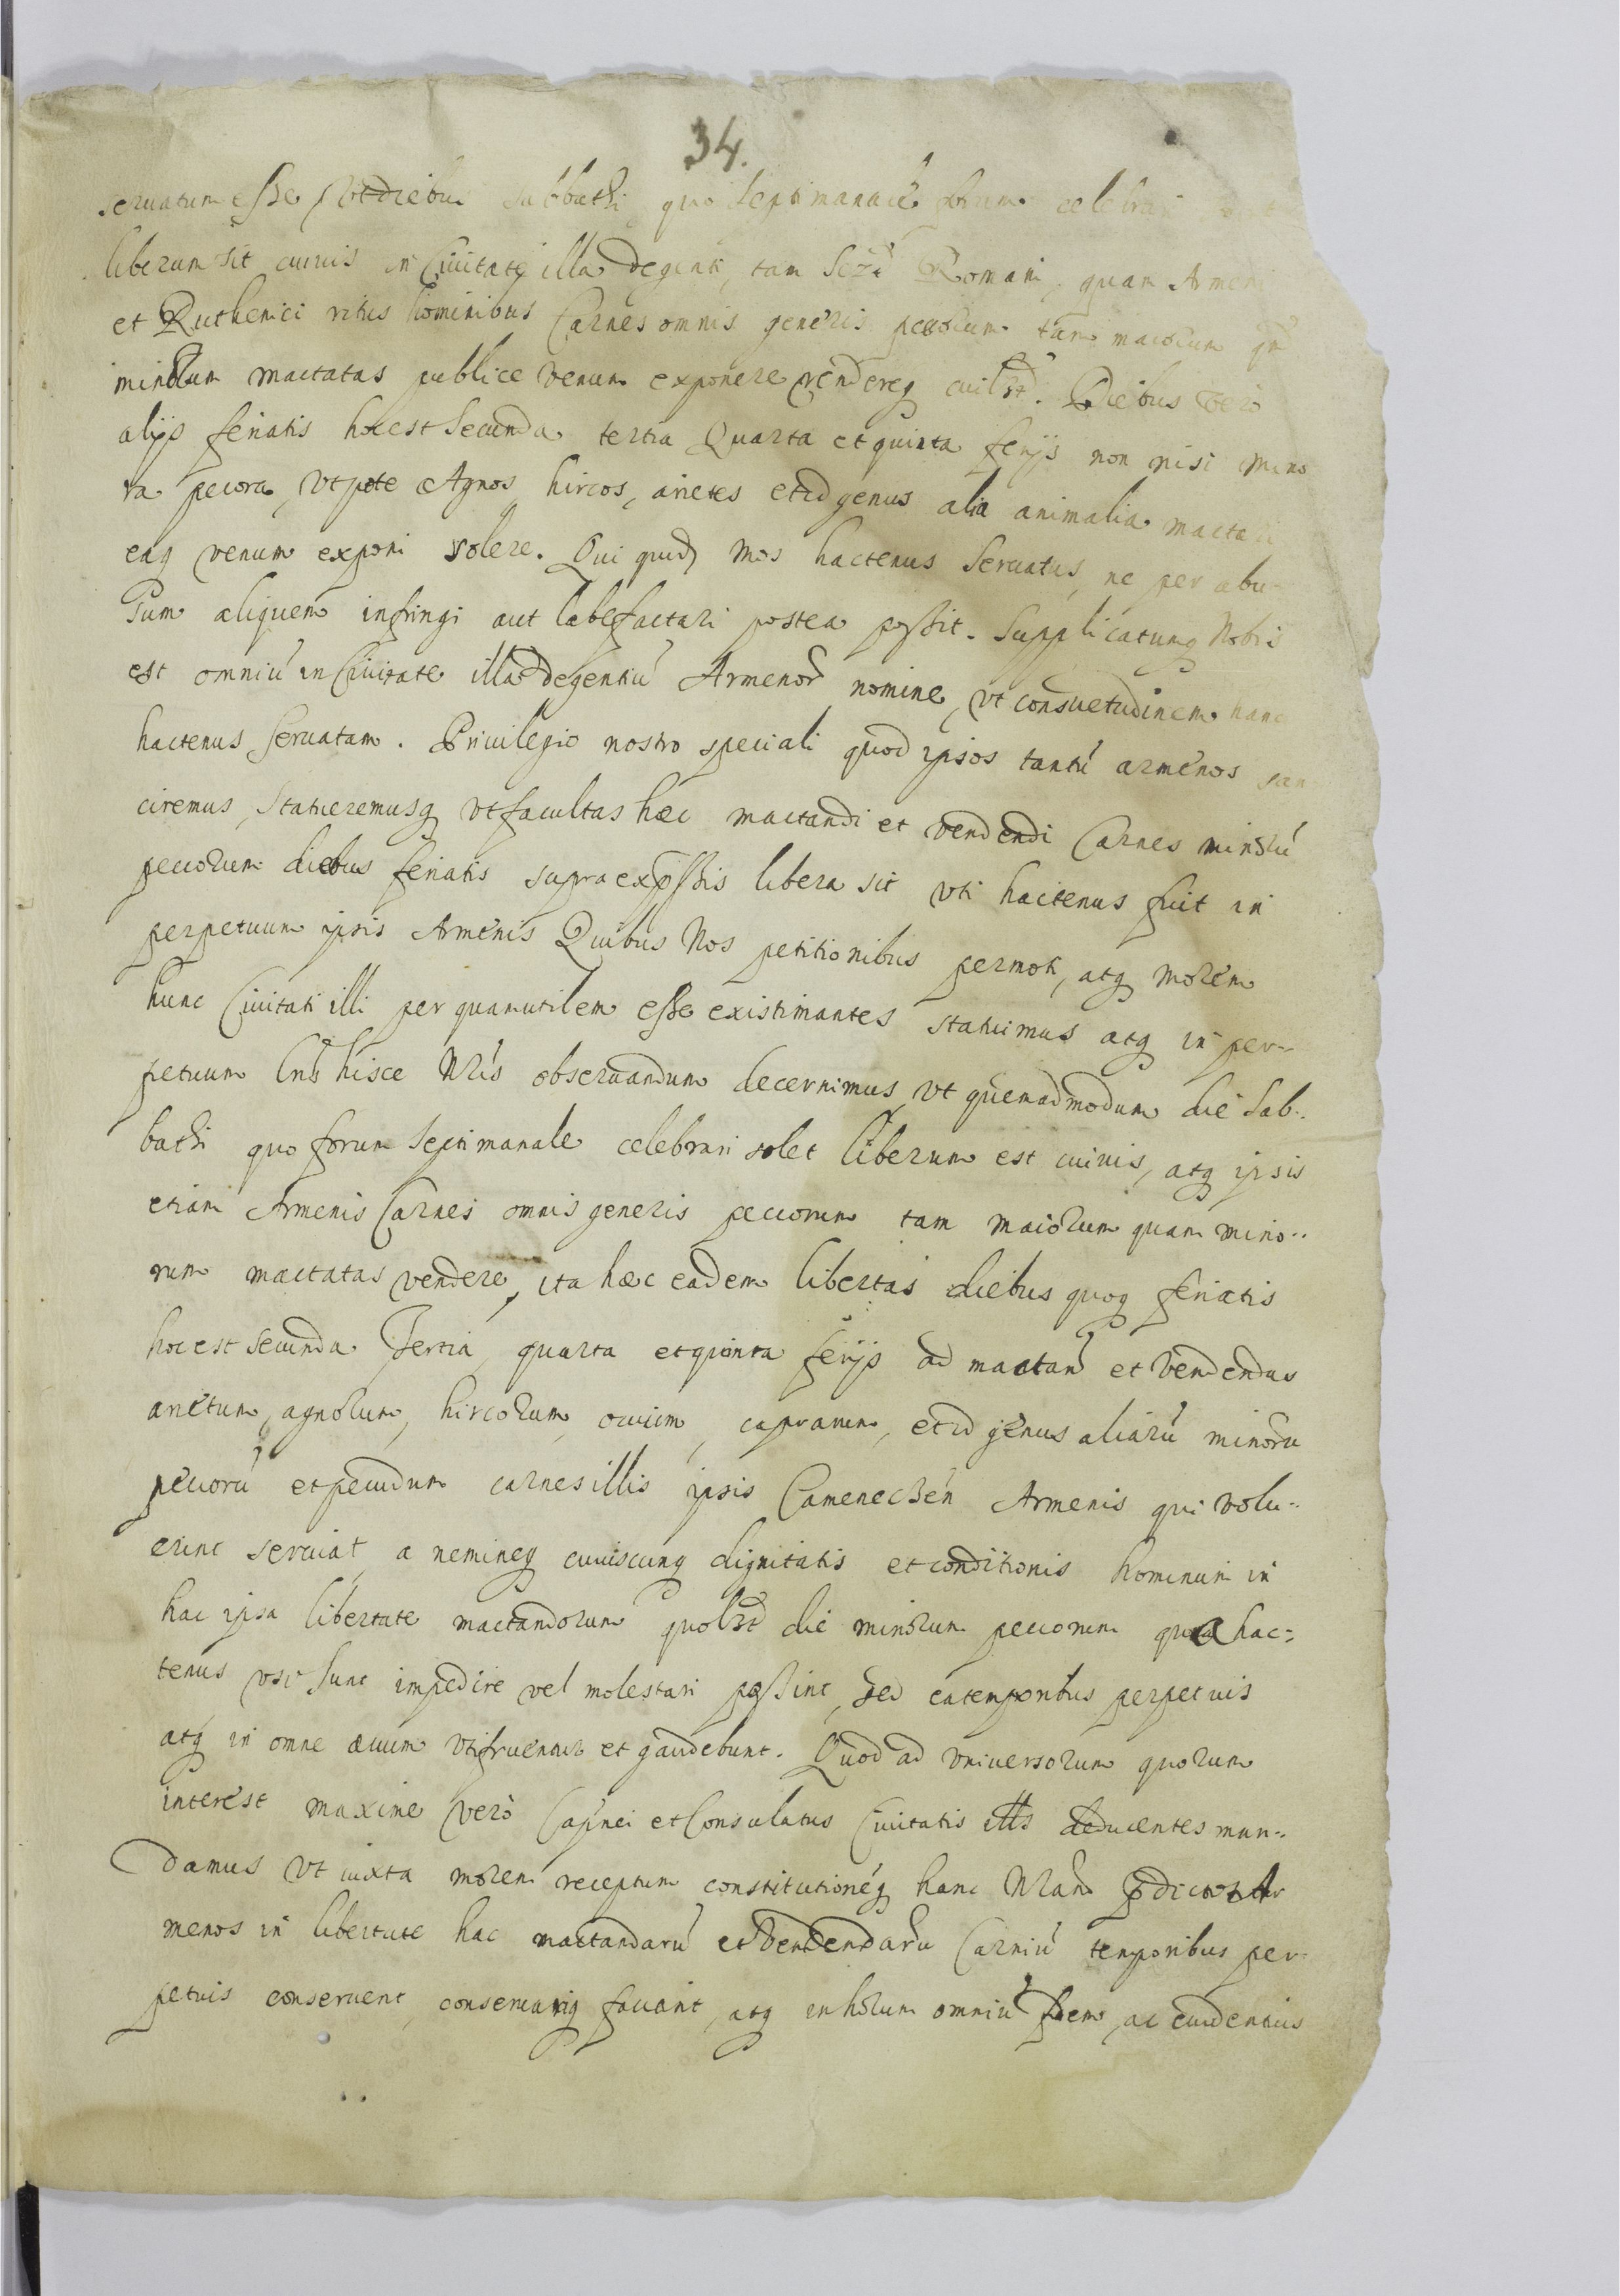 34.
seruatum esse, Vt diebus sabbathi quo septimanale forum celebrari
liberum sit cuiuis in Ciuitate illa degenti, tam Romani, quam Armeni
et Ruthenici ritus hominibus Carnes omnis generis pecorum tam maiorum
minorum mactatas publice venum exponere vendereq cuilibet. Diebus vero
alijs feriatis hoc est Secunda tertia Quarta et quinta ferijs non nisi mino
ra pecora, vt pote Agnos hircos, arietes et id genus alia animalia mactari
eaq venum exponi solere. Qui quidem mos hactenus Seruatus, ne per abu-
sum aliquem infringi aut labefactari postea possit. Supplicatumq Nobis
est omniú in Ciuitate illa degentiú Armenor nomine, vt consuetudinem hanc
hactenus Seruatam. Priuilegio nostro speciali quod ipsos tantú armenos san
ciremus, statueremusq vt facultas hæc mactandi et vendendi Carnes minorú
pecorum diebus feriatis supra expssis libera sit vti hactenus fuit in
perpetuum ipsis Armenis Quibus Nos petitionibus permoti, atq morem
hunc Ciuitati illi per quam utilem esse existimantes statuimus atq in per-
petuum hisce Nris obseruandum decernimus, vt quemadmodum die Sab-
bathi quo forum Septimanale celebrari solet liberum est cuiuis, atq ipsis
etiam Armenis Carnes omnis generis pecorum tam maiorum quam mino-
rum mactatas vendere, ita hæc eadem libertas diebus quoq feriatis
hoc est Secunda Tertia, quarta et quinta ferijs ad mactand et vendendas
arietum, agnorum, hircorum, ouium, caprarum, et id genus aliarú minorú
pecorú et pecudum carnes illis ipsis Camenecen Armenis qui volu-
erint seruiat, a nemineq cuiuiscunq dignitatis et conditionis hominum in
hac ipsa libertate mactandorum quolibet die minorum pecorum qua hac-
tenus vsi sunt impedire vel molestari possint, sed ea temporibus perpetuis
atq in omne æuum vti fruentur et gaudebunt. Quod ad vniuersorum quorum
interest maxime verò Capnei et Consulatus Ciuitatis illis deducentes man-
damus vt iuxta morem receptum constitutionéq hanc Nram pdictos Ar
menos in libertate hac mactandarú et Vendendarú Carniú temporibus per-
petuis conseruent, conseruariq faciant, atq in horum omniú fidem, ac euidentius